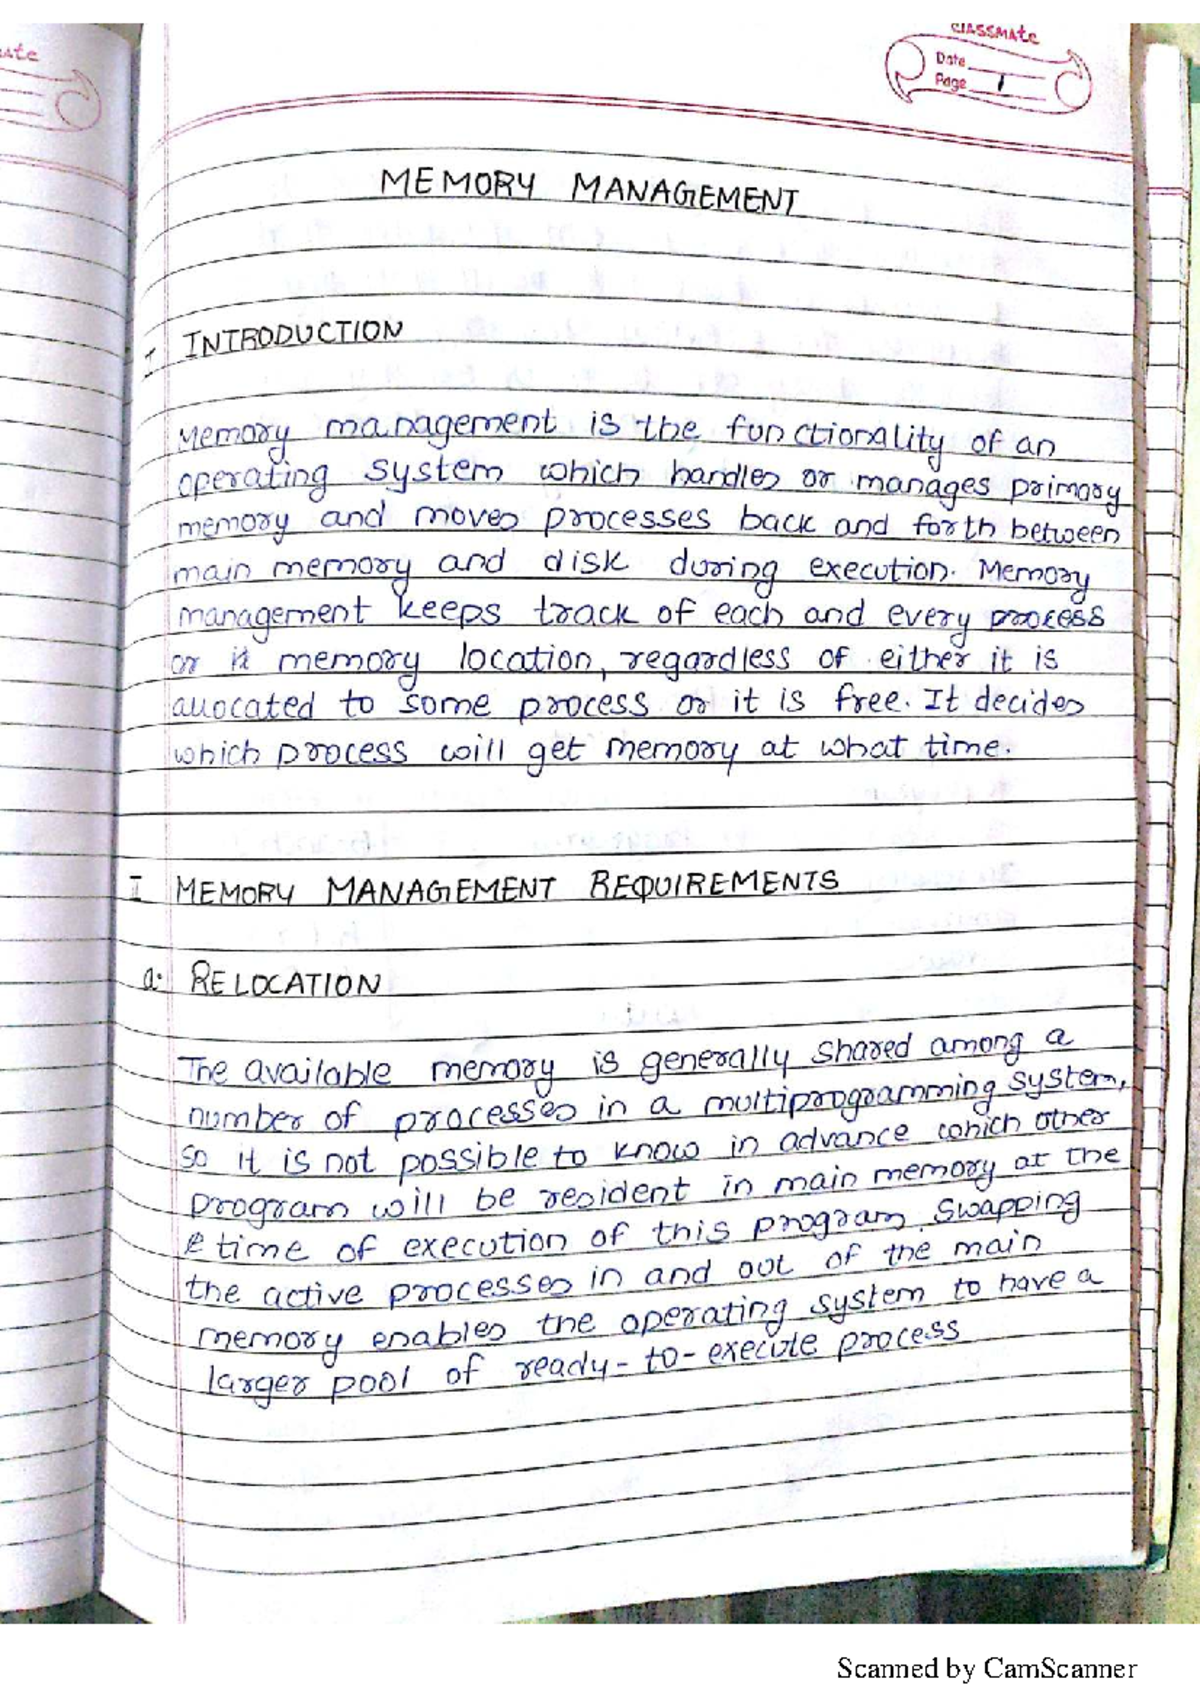 classmate
Date
Page 1
MEMORY MANAGEMENT
I INTRODUCTION
Memory management is the functionality of an
operating system which handles or manages primary
memory and moves processes back and forth between
main memory and disk during execution. Memory
management keeps track of each and every process
or memory location, regardless of either it is
allocated to some process or it is free. It decides
which process will get memory at what time.
I MEMORY MANAGEMENT REQUIREMENTS
a. RELOCATION
The available memory is generally shared among a
number of processes in a multiprogramming system,
so it is not possible to know in advance which other
program will be resident in main memory at the
time of execution of this program. Swapping
the active processes in and out of the main
memory enables the operating system to have a
larger pool of ready-to-execute process
Scanned by CamScanner